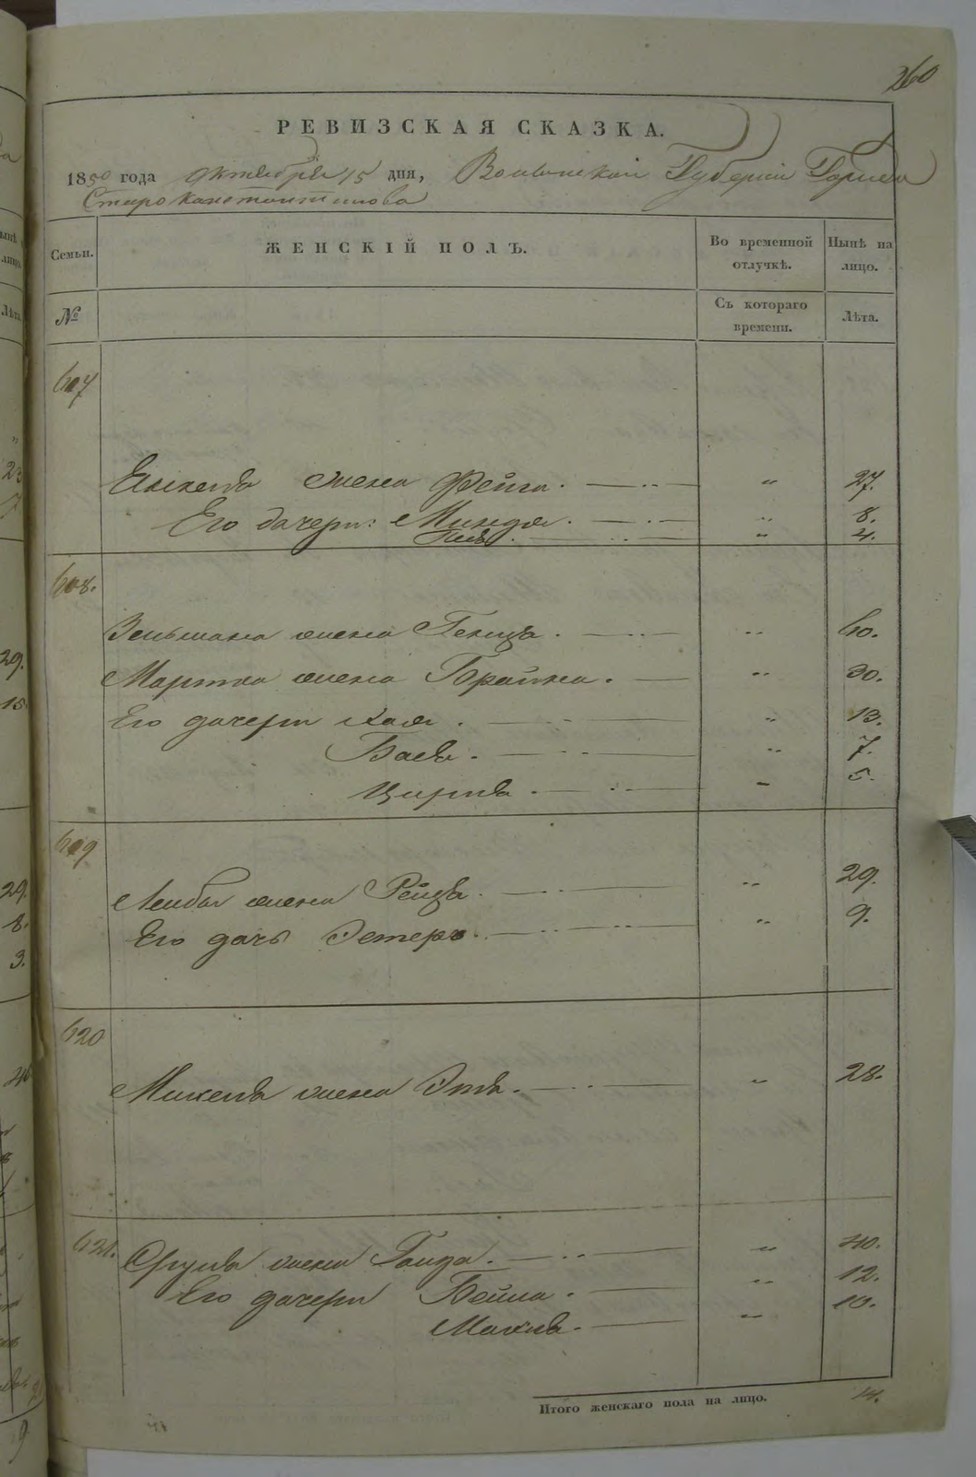 260
РЕВИЗСКАЯ СКАЗКА.
1850 года октября 15 дня, Волынской Губернии Города
Староконстантинова
Семьи. ЖЕНСКІЙ ПОЛЪ. Во временной отлучкѣ. Нынѣ на лицо.
№ Съ котораго времени. Лѣта.
617
жена Фейга. 27.
Его дочери: Миндя. 8.
4.
618.
Зельмана жена Генця. 60.
жена Брайна. 30.
Его дочери Хая. 13.
Бася. 7.
Цирля. 5.
619
Лейбы жена Рейзя 29.
Его дочь Эстеръ. 9.
620
жена Этя. 28.
621.
Сруля жена Голда. 40.
Его дочери Бейла. 12.
Малка. 10.
Итого женскаго пола на лицо. 14.